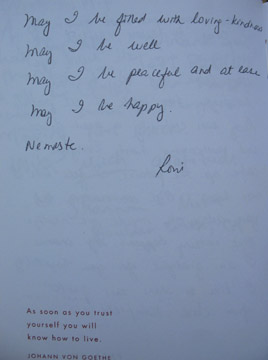 May I be filled with loving-kindness
May I be well
May I be peaceful and at ease
May I be happy.
Nemaste.
Roni
As soon as you trust
yourself you will
know how to live.
JOHANN VON GOETHE